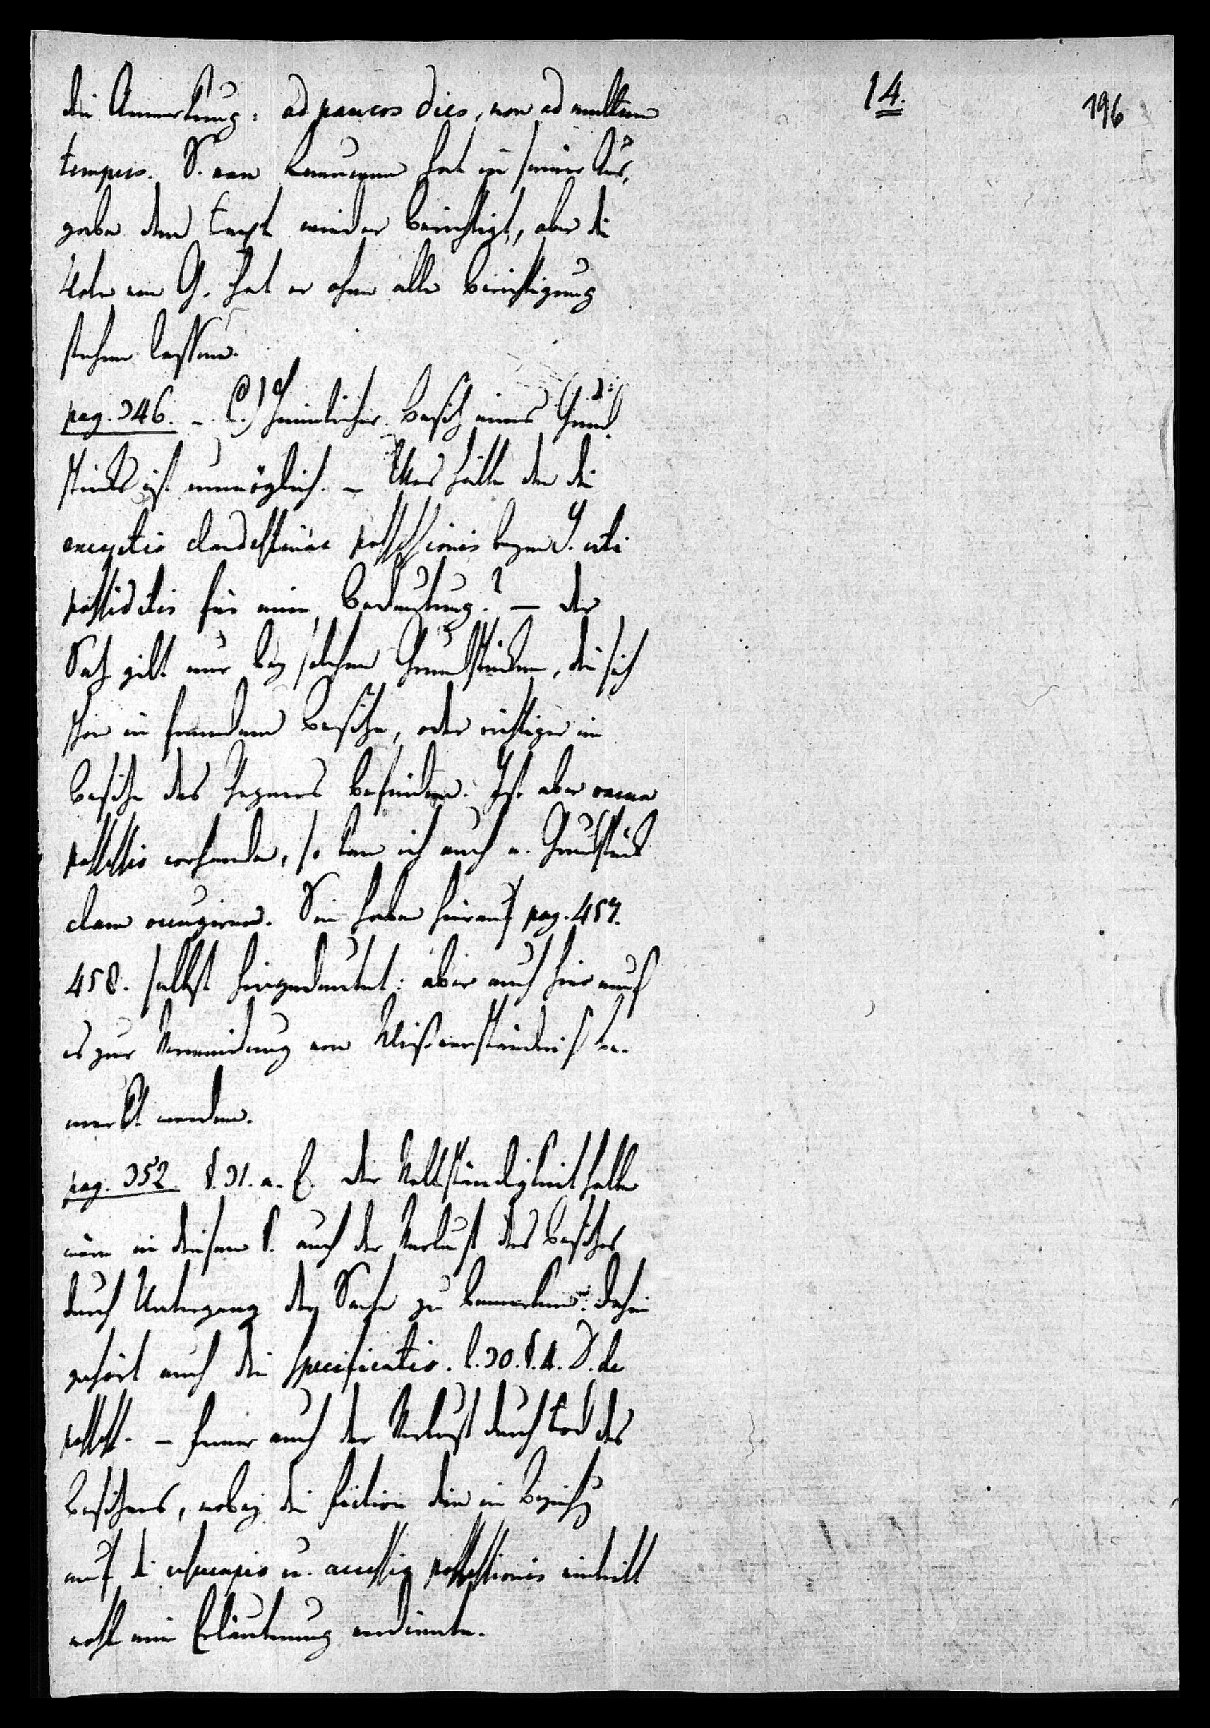 14.
196
die Anmerkung: ad paucos dies, non ad multum
tempus. S. van Leeuwen hat in seiner Aus-
gabe den Text wieder berichtigt, aber die
Note von G. hat er ohne alle Berichtigung
stehen lassen.
pag. 346. - C.) heimlicher Besitz eines Grund-
stücks ist unmöglich. - Was hätte den die
exceptio clandestinae possessionis beym J. uti
possidetis für eine Bedeutung? - der
Satz gilt nur bey solchen Grundstücken, die sich
schon in fremdem Besitze, oder richtiger im
Besitze des Gegners befinden. Ist aber vacua
possessio vorhanden, so kan ich auch e. Grundstück
clam occupiren. Sie haben hierauf pag. 457.
458. selbst hingedeutet: aber auch hier muß
es zur Vermeidung von Mißverständniß be-
merkt werden.
pag. 352 §. 31. a. E. der Vollständigkeit halber
wäre in diesem §. auch der Verlust des Besitzes
durch Untergang der Sache zu bemerken. Dahin
gehört auch die specificatio. l. 30. §. 4. D. de
possess. - ferner auch der Verlust durch Tod des
Besitzers, wobey die fiction die in Bezieh
auf die usucapio u. accessio possessionis eintritt
wohl eine Erläuterung verdiente.